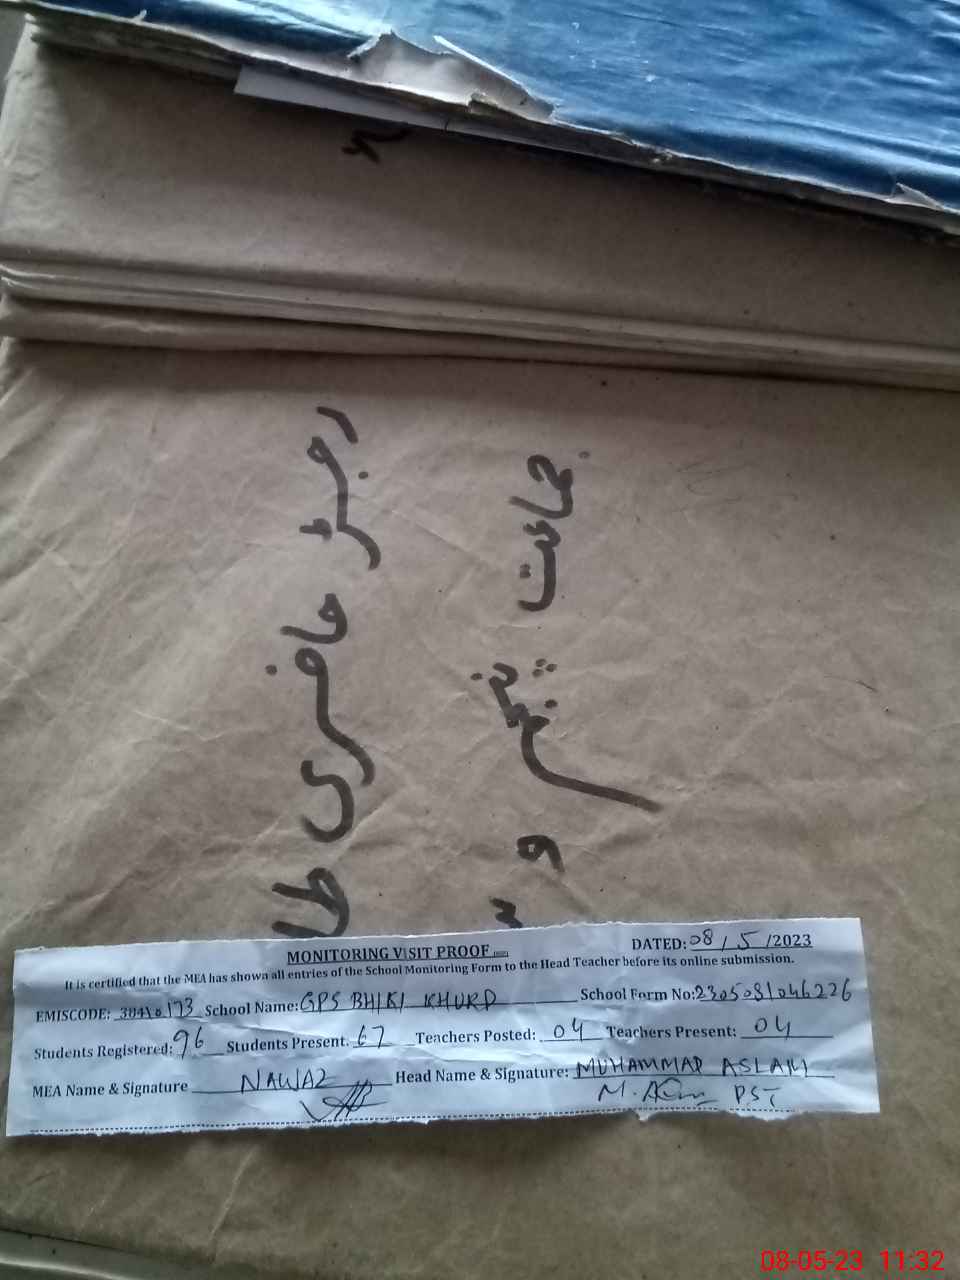 رجسٹر حاضری طا
جماعت پنجم
و
MONITORING VISIT PROOF
DATED: 08 / 5 /2023
It is certified that the MEA has shown all entries of the School Monitoring Form to the Head Teacher before its online submission.
EMISCODE: 38410173 School Name: GPS BHIKI KHURD School Form No: 2305081046226
Students Registered: 96 Students Present. 67 Teachers Posted: 04 Teachers Present: 04
MEA Name & Signature NAWAZ Head Name & Signature: MUHAMMAD ASLAM
M. Aslam PST
08-05-23 11:32